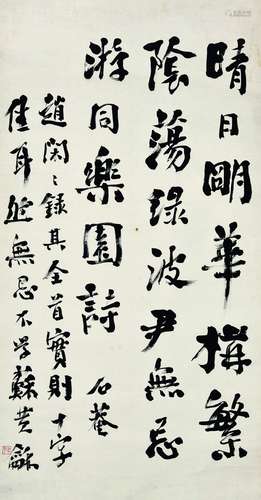 晴日明華構繁
陰蕩綠波尹無忌
游同樂園詩 石菴
趙閑〻錄其全首實則十字
佳耳然無忌不學蘇黃 龢